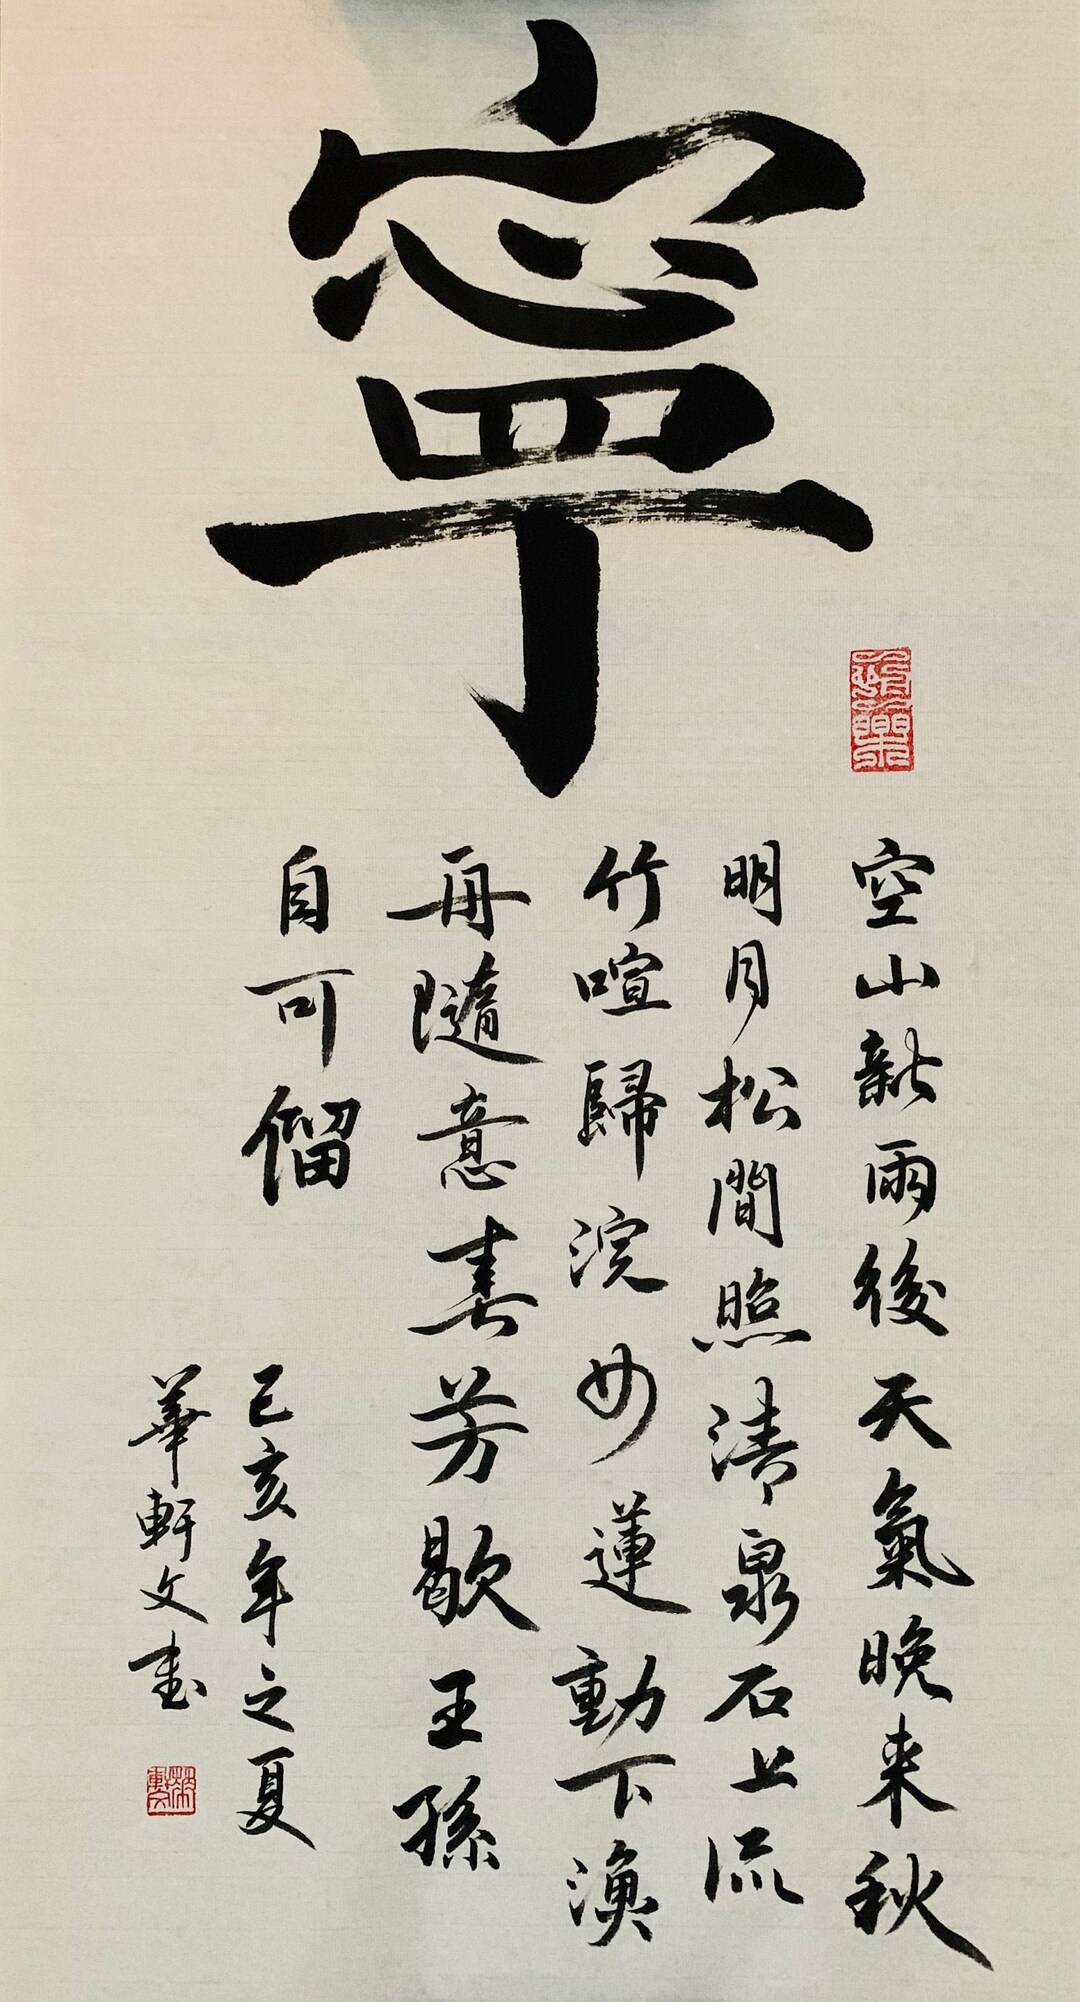 寧
空山新雨後天氣晚来秋
明月松間照清泉石上流
竹喧歸浣女蓮動下漁
舟隨意春芳歇王孫
自可留
己亥年之夏
華軒文書